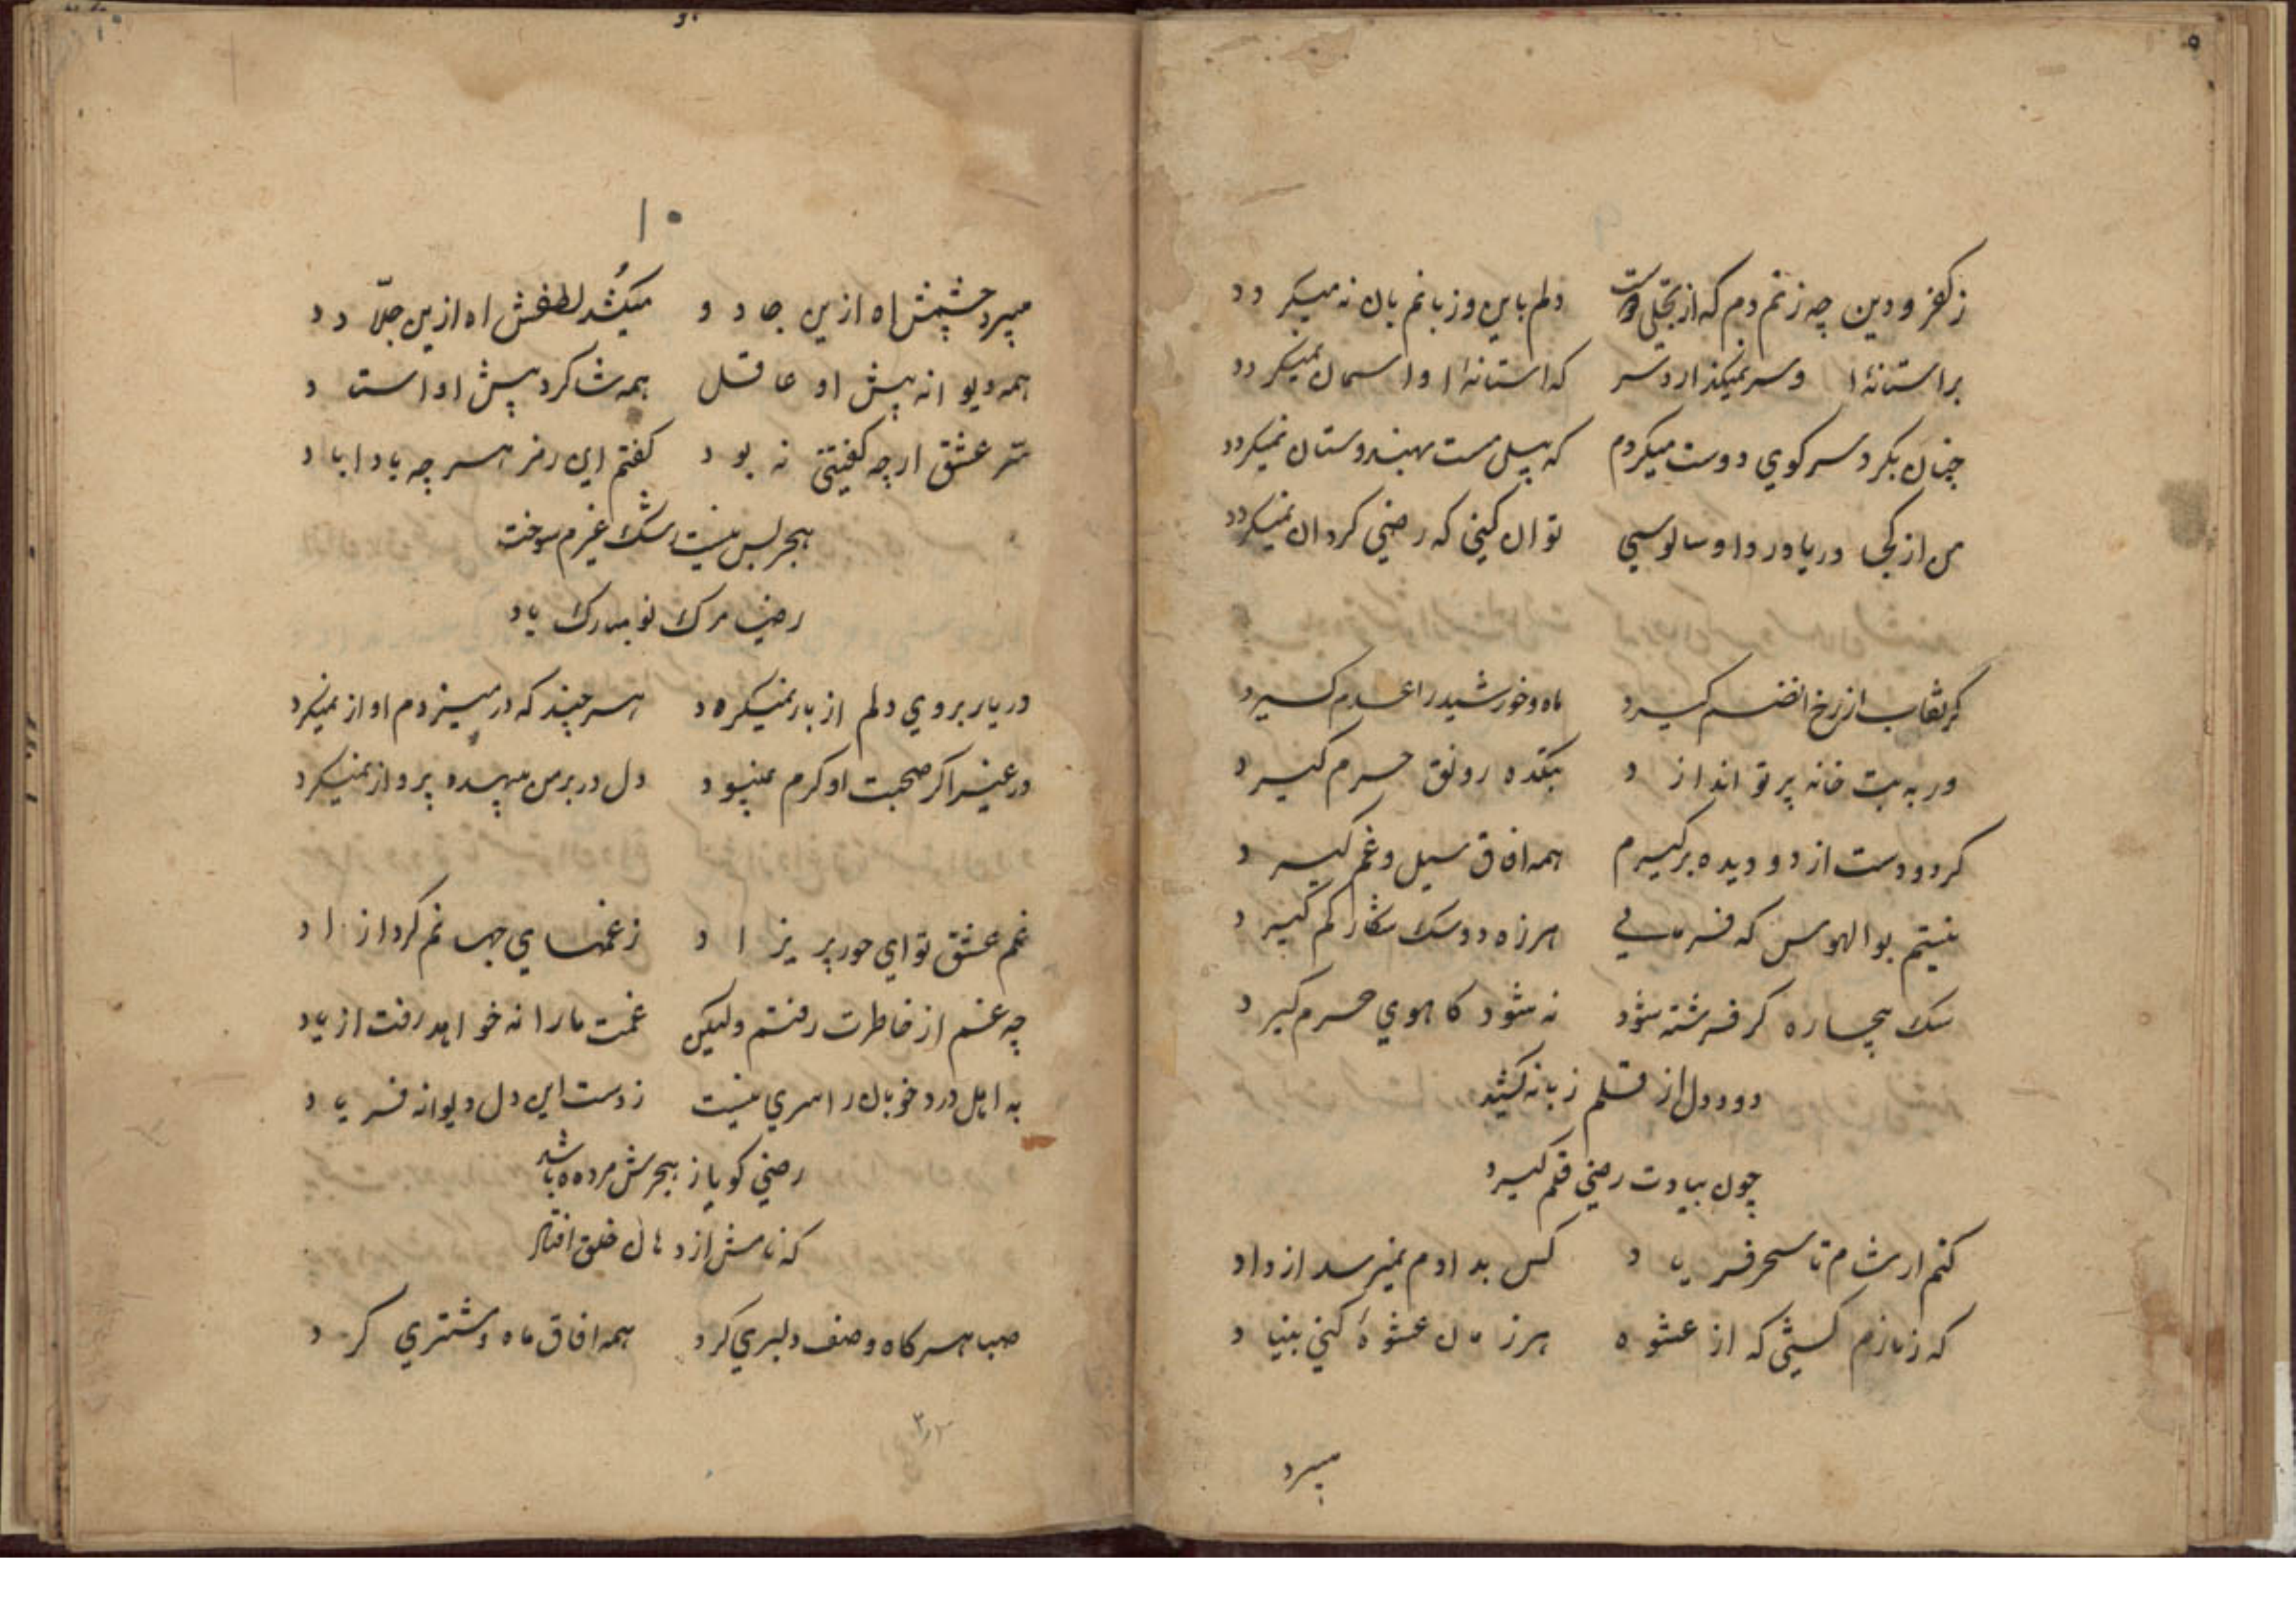 ۹
ز کفر و دین چه زنم دم که از تجلی دوست دلم باین و زبانم بان نه میکردد
براستانۀ او سر نمیکذارد سر که استانه او اسمان نمیکردد
چنان بکرد سر کوي دوست میکردم که پیل مست بهندوستان نمیکردد
من از کجا و ریا و ردا و سالوسي تو ان کني که رضي کرد ان نمیکردد
کر نقاب از رخ ان صنم کیرد ماه و خورشید را عدم کیرد
ور به بت خانه پرتو اندازد بتکده رونق حرم کیرد
کر دو دست از دو دیده برکیرم همه افاق سیل و غم کیرد
نیستم بوالهوس که فرمايي هرزه دو سک شکار کم کیرد
سک بیچاره کر فرشته شود نه شود کاهوي حرم کیرد
دود دل از قلم زبانه کشید
چون بیادت رضي قلم کیرد
کنم ار شام تا سحر فریاد کس بدادم نمیرسد از داد
که زنازم کشي که از عشوه هر زمان عشوۀ کني بنیاد
میبرد
۱۰
میبرد چشمش اه ازین جادو میکُشد لطفش اه ازین جلّاد
همه دیوانه پیش او عاقل همه شاکرد پیش او استاد
سّر عشق ارچه کفتني نه بود کفتم این رمز هر چه باداباد
هجر بس نیست رشک غیرم سوخت
رضي مرک نو مبارک باد
در یار بروي دلم از باز نمیکرد هر چند که در میزدم اواز نمیکرد
در غیر اکر صحبت او کرم نمیبود دل در بر من میپید و پرواز نمیکرد
غم عشق تو اي حور پریزاد ز غمهاي جهانم کرد ازاد
چه غم از خاطرت رفتم ولیکن غمت ما را نه خواهد رفت از یاد
به اهل درد خوبان را سري نیست ز دست این دل دیوانه فریاد
رضي کویا ز هجرش مرده باشد
که نامش از دهان خلق افتاد
صبا هر کاه وصف دلبري کرد همه افاق ماه و مشتري کرد